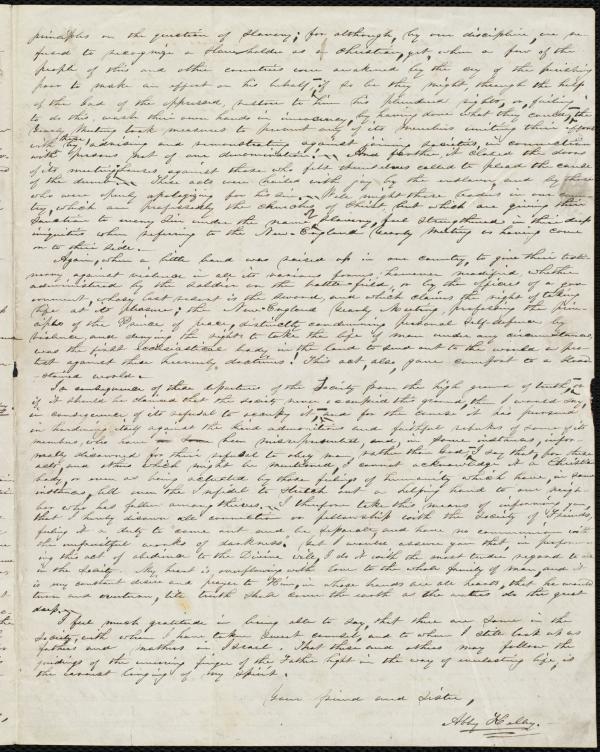 principles on the question of Slavery; for although, by our discipline, we re-
fused to recognize a slaveholder as a Christian, yet, when a few of the
people of this and other countries were awakened by the cry of the perishing
poor to make an effort on his behalf, if so be they might, through the help
of the God of the oppressed, restore to him his plundered rights, or, failing
to do this, wash their own hands in innocency, by having done what they could, the
Yearly Meeting took measures to prevent any of its members uniting their efforts
with these by advising and remonstrating against joining societies in connection
with persons not of our denomination. And further it closed the doors
of its meeting houses against those who felt themselves called to plead the cause
of the dumb. These acts were hailed with joy by the enslaver, and by those
who were openly apologizing for his sin. Well might those bodies in our coun-
try, which are professedly the churches of Christ but which are giving their
sanction to every sin under the name of slavery, feel strengthened in their deep
iniquities when referring to the New-England Yearly Meeting as having come
on to their side.
Again, when a little band was raised up in our country, to give their testi-
mony against violence in all its various forms, however modified, whether
administered by the soldier on the battle-field, or by the officers of a gov-
ernment, whose last resort is the sword, and which claims the right of taking
life at its pleasure; the New-England Yearly Meeting, professing the prin-
ciples of the Prince of peace, distinctly condemning personal self-defence by
violence, and denying the right to take the life of man under any circumstances,
was the first ecclesiastical body in the land to send out to the world a pro-
test against these heavenly doctrines. This act, also, gave comfort to a blood-
stained world.
In consequence of these departures of the Society from the high ground of truth, or
if it should be claimed that the society never occupied this ground, then I would say,
in consequence of its refusal to occupy it, and for the course it has pursued
in hardening itself against the kind admonitions and faithful rebukes of some of its
members, who have been misrepresented, and, in some instances, infor-
mally disowned for their refusal to obey man, rather than God, I say that, for these
acts, and others which might be mentioned, I cannot acknowledge it a Christian
body, or even as being actuated by those feelings of humanity which have, in some
instances, led even the Infidel to stretch out a helping hand to our neigh-
bor who has fallen among thieves. I therefore take this means of informing you,
that I hereby disown all connection or fellowship with the Society of Friends,
feeling it a duty to come out and be separate, and have no communion "with
the unfruitful works of darkness"; but I would assure you that, in perform-
ing this act of obedience to the Divine will, I do it with the most tender regard to all
in the Society. My heart is overflowing with love to the whole family of man, and it
is my constant desire and prayer to Him, in whose hands are all hearts, that he would
turn and overturn, till truth shall cover the earth as the waters do the great
deep.
I feel much gratitude in being able to say, that there are some in the
Society, with whom I have taken sweet counsel, and to whom I still look up as
fathers and mothers in Israel. That these and others may follow the
guidings of the unerring finger of the Father light in the way of everlasting life, is
the earnest longing of my spirit.
Your friend and Sister,
Abby Kelley.